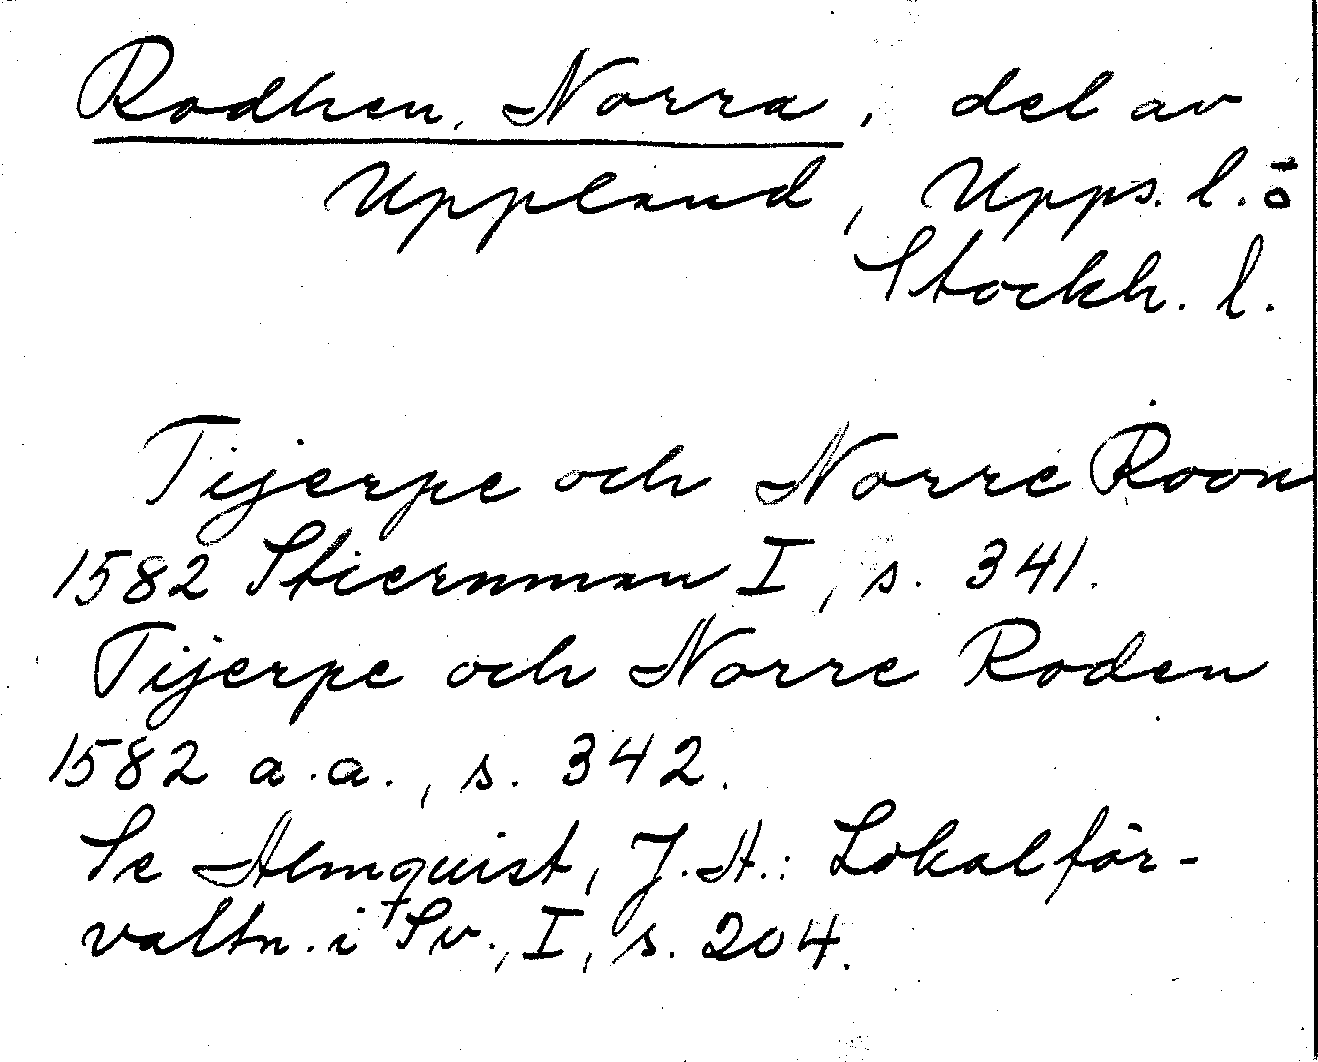 Rodhen, Norra, del av
Uppland, Upps. l. o
Stockh. l.
Tijerpe och Norre Roon
1582 Stiernman I, s. 341.
Tijerpe och Norre Roden
1582 a.a., s. 342.
Se Almquist, J.A.: Lokalför-
valtn. i Sv., I, s. 204.